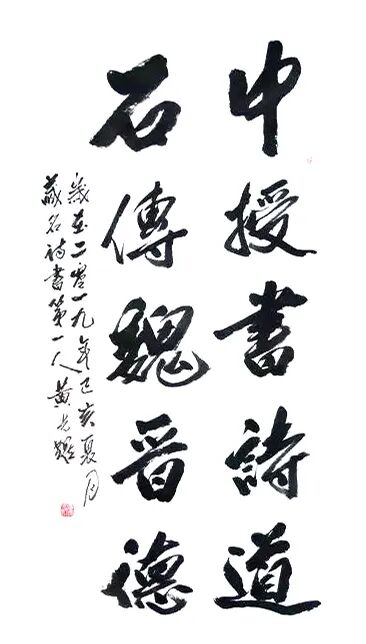 中授書詩道
石傳魏晉德
歲在二零一九年己亥夏月
藏名詩書第一人黃光